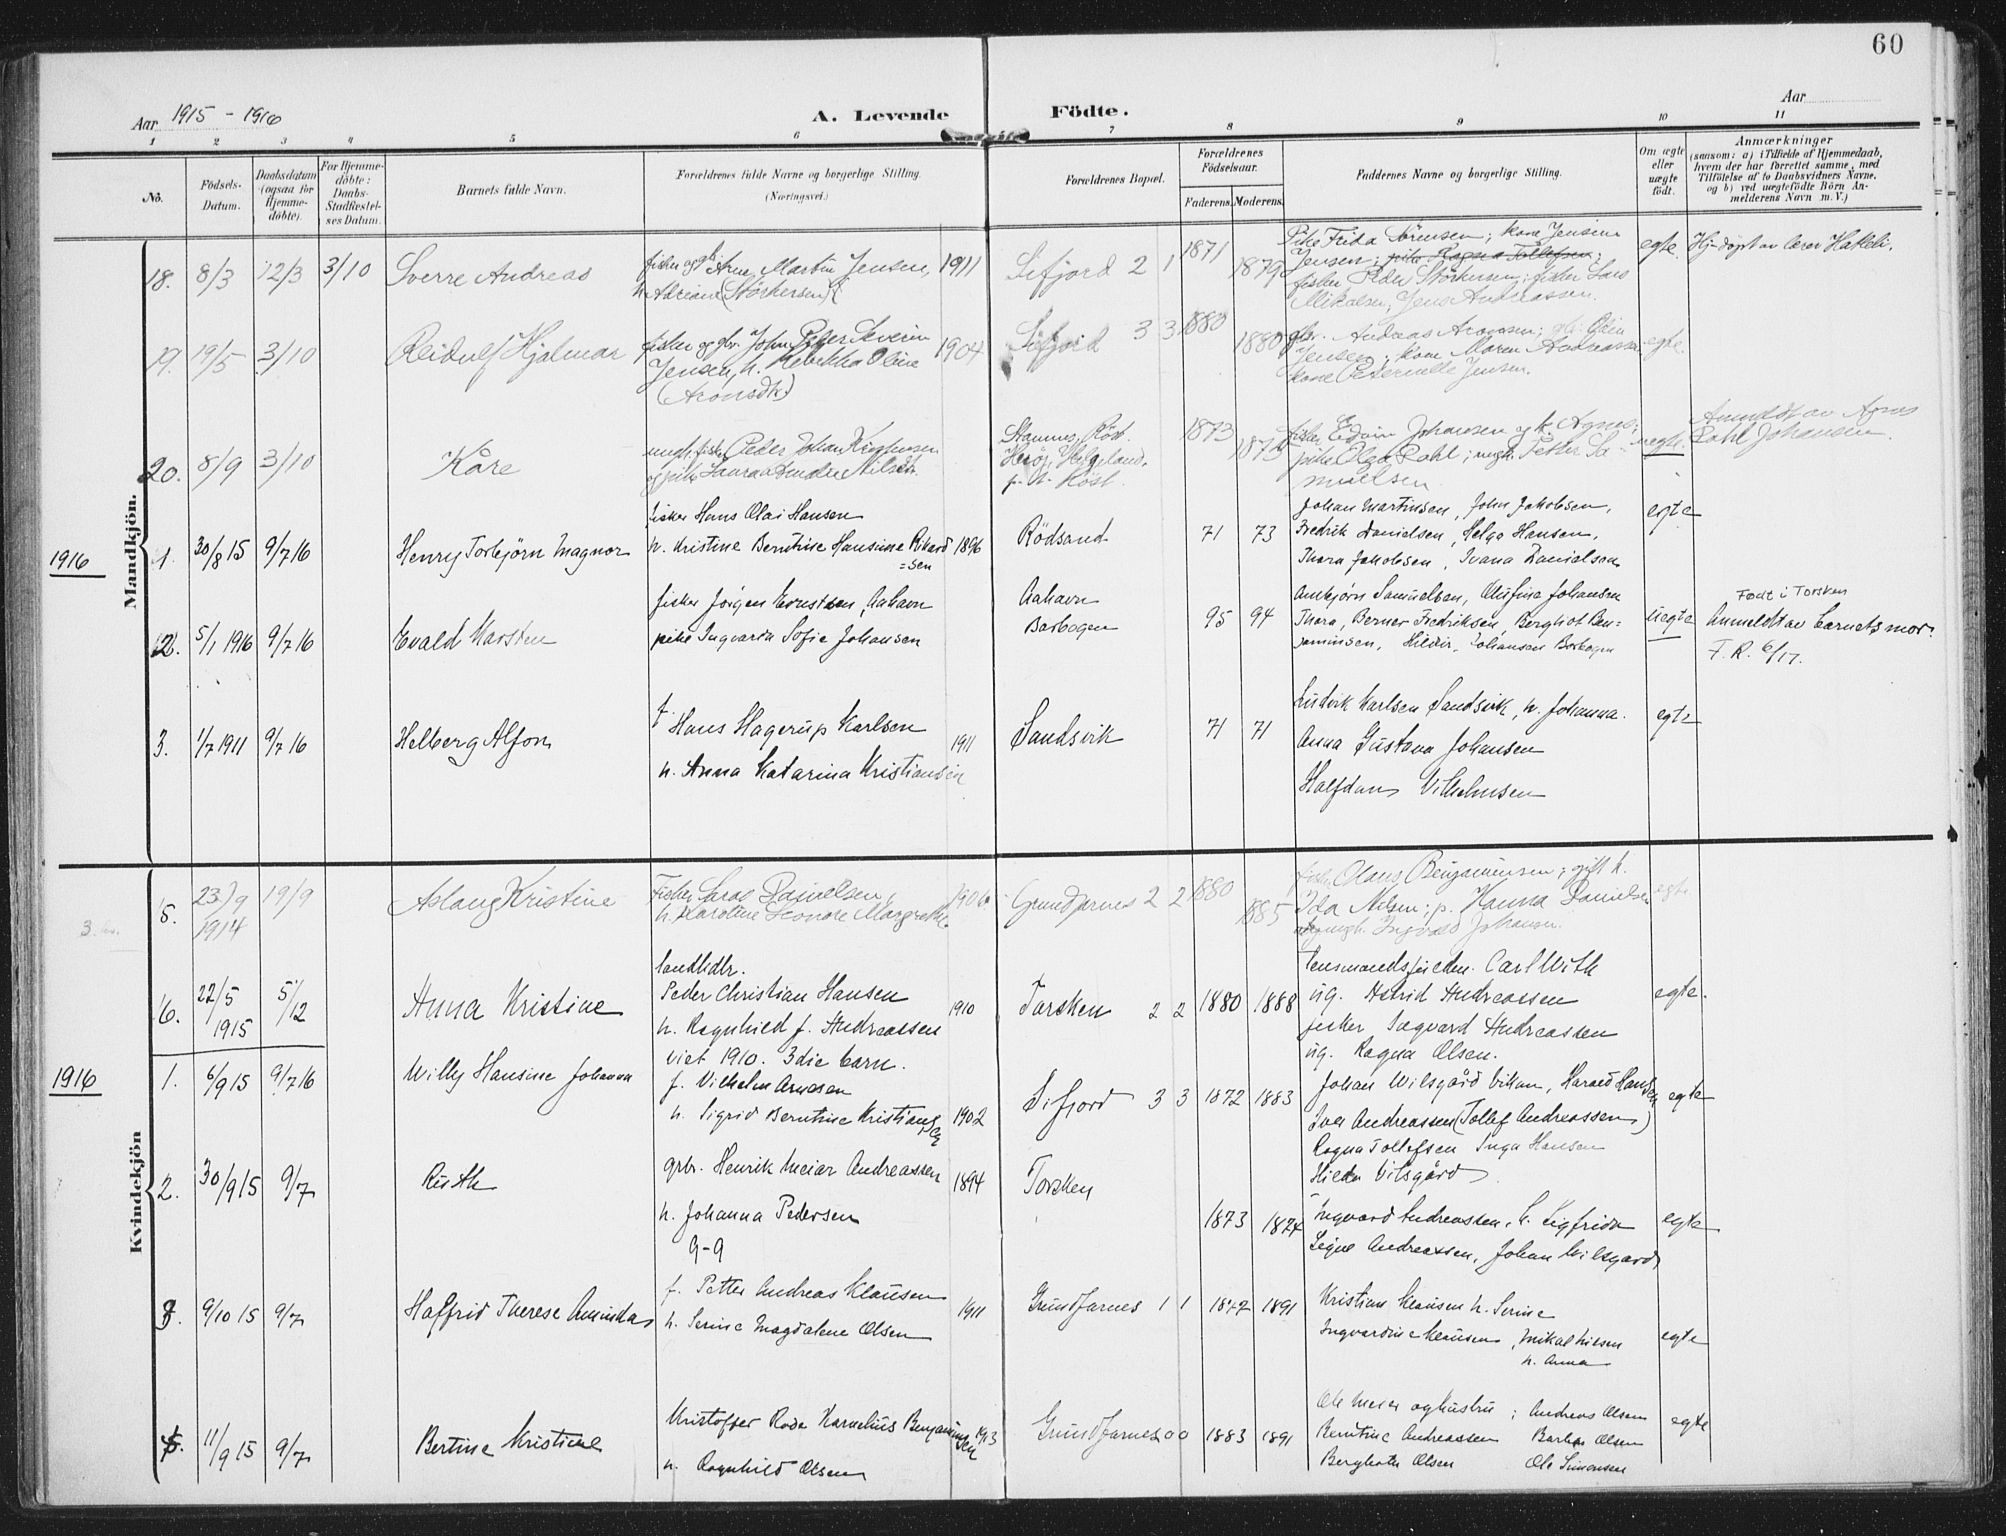 60
Aar 1915 - 1916
A. Levende Födte.
Aar
1 2 3 4 5 6 7 8 9 10 11
No.
Födsels-Datum.
Daabsdatum (ogsaa for Hjemme-döbte).
For Hjemme-döbte: Daabs-Stadfæstel-ses Datum.
Barnets fulde Navn.
Forældrenes fulde Navne og borgerlige Stilling.
(Næringsvei.)
Forældrenes Bopæl.
Forældrenes Födselsaar.
Faderens. Moderens.
Faddernes Navne og borgerlige Stilling.
Om ægte eller uægte født.
Anmærkninger
(saasom: a) i Tilfælde af Hjemmedaab, hvem der har forrettet samme, med Tilföielse af to Daabsvidners Navne, og b) ved uægtefödte Börn Anmelderens Navn m. V.)
Mandkjön.
18. 8/3 12/3 3/10 Sverre Andreas
fisker og gb. Martin Jensen, 1911
h. Adriane (Störkersen)
Sifjord 2 1 1871 1879
Pike Frida Sörensen; kone Jensine
Jensen; pike Ragna Tollefsen;
fisker Peder Störkersen; fisker Lars
Mikalsen; Jens Andreassen.
egte. Hj-döpt av lærer Hakleli.
19. 19/5 3/10 Reidulf Hjalmar
fisker og gbr. John Peder Severin
Jensen, h. Rebekka Oline 1904
(Aronsdtr)
Sifjord 3 3 1880 1880
gbr. Andreas Aronsen; gb. Odin
Jensen; kone Maren Andreassen
kone Peternelle Jensen.
egte.
20. 8/9 3/10 Kåre
ungk. fisker Peder Johan
og pike Laura Amalie Nilsen
Stamnes, Röst.
Herøy, Helgeland.
Röst.
1873 1873
fisker Edvin Johansen og k. Agnes;
pike Olga Dahl; ungk. Petter Samuelsen
uegte. Anmeldt av Agnes
Dahl Johansen.
1916
1. 30/8 15 9/7 16 Henry Torbjörn Magnor
fisker Hans Olai Hansen
h. Kristine Berntine Hansine Rikard=sen 1896
Rödsand 71 73
Johan Martinsen, John Jakobsen,
Fredrik Danielsen, Helga Hansen,
Thora Jakobsen, Ivana Danielsen
egte
2. 5/1 1916 9/7 16 Evald Karsten
fisker Jörgen Ernstsen, Aahavn
pike Ingvarda Sofie Johansen
Aahavn
Barbogen
95 94
Ambjörn Samuelsen, Olufine Johansen
Thora, Berner Fredriksen, Bergitot Ben=
jaminsen, Hildur Johansen Borbogen
uegte
Født i Torsken
Anmeldt av barnets mor.
F. R. 6/17.
3. 1/7 1911 9/7 16 Helberg Alfon
f. Hans Hagerup Karlsen
h. Anna Katarina Kristiansen 1911
Sandsvik 71 71
Ludvik Karlsen Sandsvik, h. Johanna.
Anna Gustava Johansen
Halfdan Vilhelmsen
egte
Kvindekjön
3. kv.
5. 23/9 1914 19/9 Aslaug Kristine
Fisker Lars Danielsen, 1906
h. Karoline Leonore Margrethe
Grundfarnes 2 2 1880 1885
fisk. Olaus Benjaminsen; gift k.
Ida Nilsen; p. Hanna Danielsen
ungk. Ingvald Johansen.
egte.
6. 22/5 1915 5/12 Anna Kristine
landhdlr.
Peder Christian Hansen 1910
h. Ragnhild f. Andreassen
viet 1910. 3die barn.
Torsken 2 2 1880 1888
Lensmandsfuldm. Carl With
ug. Astrid Andreassen
fisker Ingvard Andreassen
ug. Ragna Olsen.
egte.
1916
1. 6/9 15 9/7 16 Willy Hansine Johanna
f. Vilhelm Arnesen
h. Sigrid Berntine Kristiansen 1902
Sifjord 3 3 1872 1883
Johan Wilsgård Vikan, Harald Hansen
Iver Andreassen (Tollef Andreassen)
Ragna Tollefsen Inga Hansen
Hilda Vilsgård
egte
2. 30/9 15 9/7 Ruth
grbr. Henrik Meiar Andreassen 1894
h. Johanna Pedersen
9-9
Torsken 1873 1874
Ingvard Andreassen, h. Sigfrida
Signe Andreassen, Johan Vilsgard
egte
3. 9/10 15 9/7 Halfrid Therese Aminda
f. Petter Andreas Klausen
h. Serine Magdalene Olsen 1911
Grundfarnes 1 1 1872 1891
Kristian Klausen h. Serine
Ingvardine Klausen, Mikal Nilsen
h. Anna
egte
5. 11/9 15 9/7 Bertine Kristine
Kristoffer Rode Kornelius Benjaminsen 1913
h. Ragnhild Olsen
Grundfarnes 0 0 1883 1891
Ole Meier og hustru; Andreas Olsen
Berntine Andreassen Barbra Olsen
Berghote Olsen Ole Simonsen
egte